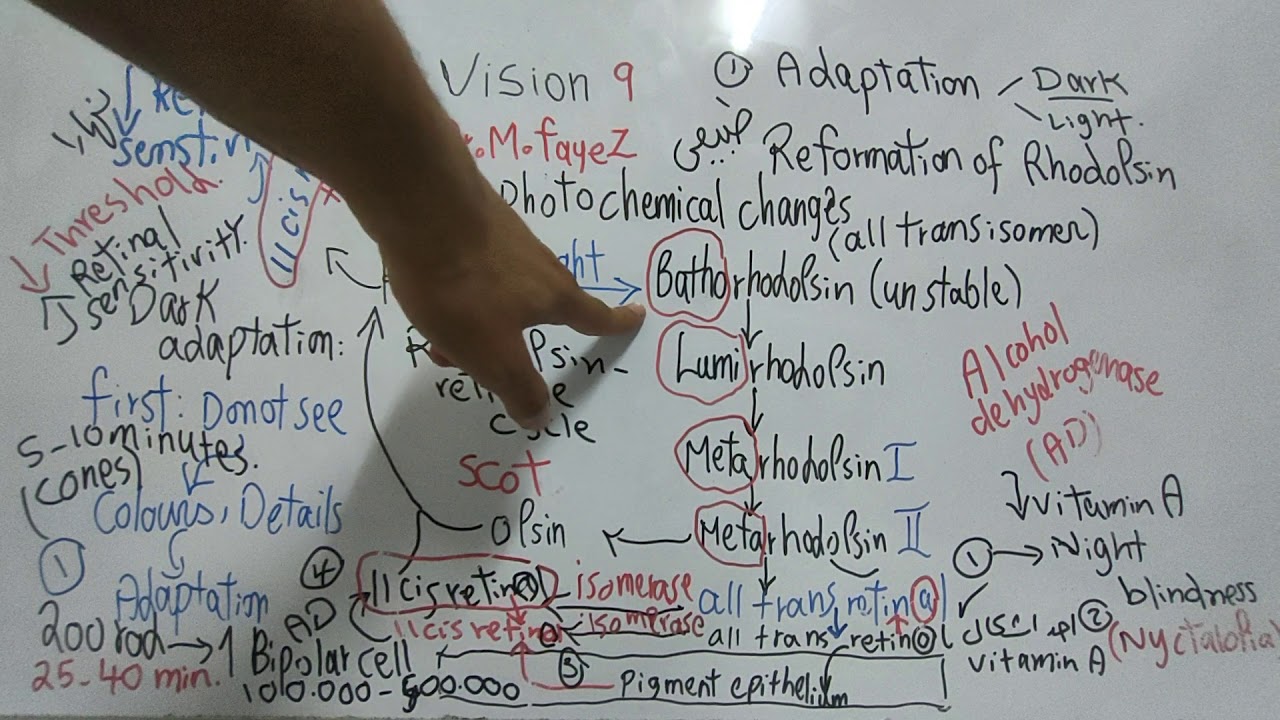 Vision 9
① Adaptation
Dark
Light.
M. fayez
Reformation of Rhodopsin
Photochemical changes
(all trans isomer)
Bathorhodopsin (unstable)
Lumirhodopsin
Metarhodopsin I
Metarhodopsin II
opsin
Cycle
SCOT
④ 11 cis retinal
isomerase
all trans retinal
11 cis retinol
isomerase
all trans retinol
AD
③
Pigment epithelium
Alcohol
dehydrogenase
(AD)
↓ vitamin A
① → Night
blindness
(Nyctalopia)
②
vitamin A
↓ Re
senst.
11 cis
Threshold.
Retinal
sensitivity.
Dark
adaptation:
first: Donot see
5-10 minutes.
(cones)
Colours, Details
①
Adaptation
200 rod → 1 Bipolar cell
25-40 min.
100.000-500.000